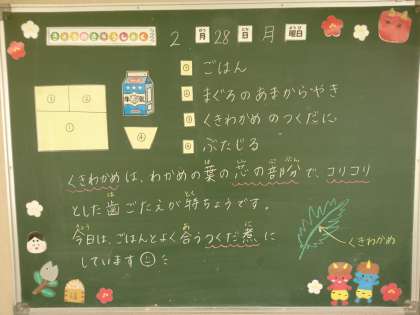 きょうのきゅうしょく
2月28日月曜日
① ごはん
② まぐろのあまからやき
③ くきわかめのつくだに
④ ぶたじる
くきわかめは、わかめの葉の芯の部分で、コリコリ
とした歯ごたえが特ちょうです。
今日は、ごはんとよく合うつくだ煮に
しています
くきわかめ
③ ②
①
④